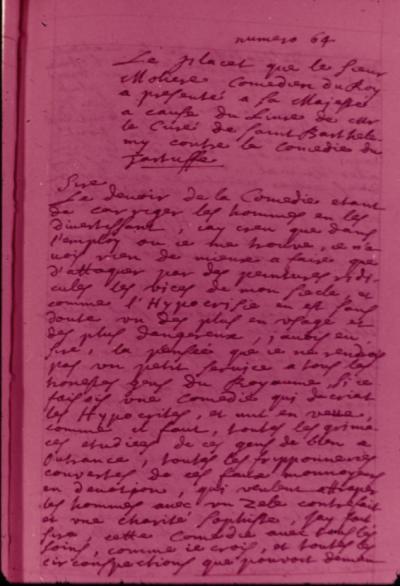 numero 64
Le placet que le sieur
Moliere Comedien du Roy
a presenté a sa Majesté
a cause du Liure de Mr
le Curé de Saint Barthele
my contre la comedie du
Tartuffe
Sire
Le deuoir de la Comedie etant
de corriger les hommes en les
diuertissant, j'ay creu que dans
l'employ ou ie me trouue, ie n'a
uois rien de mieux a faire que
d'attaquer par des peintures ridi
cules les vices de mon siecle, et
comme l'Hypocrisie en est sans
doute vn des plus en vsage et
des plus dangereux, j'auois eu,
Sire, la pensée que ie ne rendrois
pas vn petit seruice a tous les
honestes gens du Royaume, si ie
faisois vne Comedie qui decriat
les Hypocrites, et mit en veüe,
comme il faut, toutes les grima
ces etudiées de ces gens de bien a
outrance, toutes les fripponneries
couuertes de ces faux monnoyeurs
en deuotion, qui veulent attraper
les hommes auec vn zele contrefait
et vne charité sophistiq, jay fait
Sire, cette Comedie auec tous les
soins, comme ie crois, et toutes les
circonspections que pouuoit demen